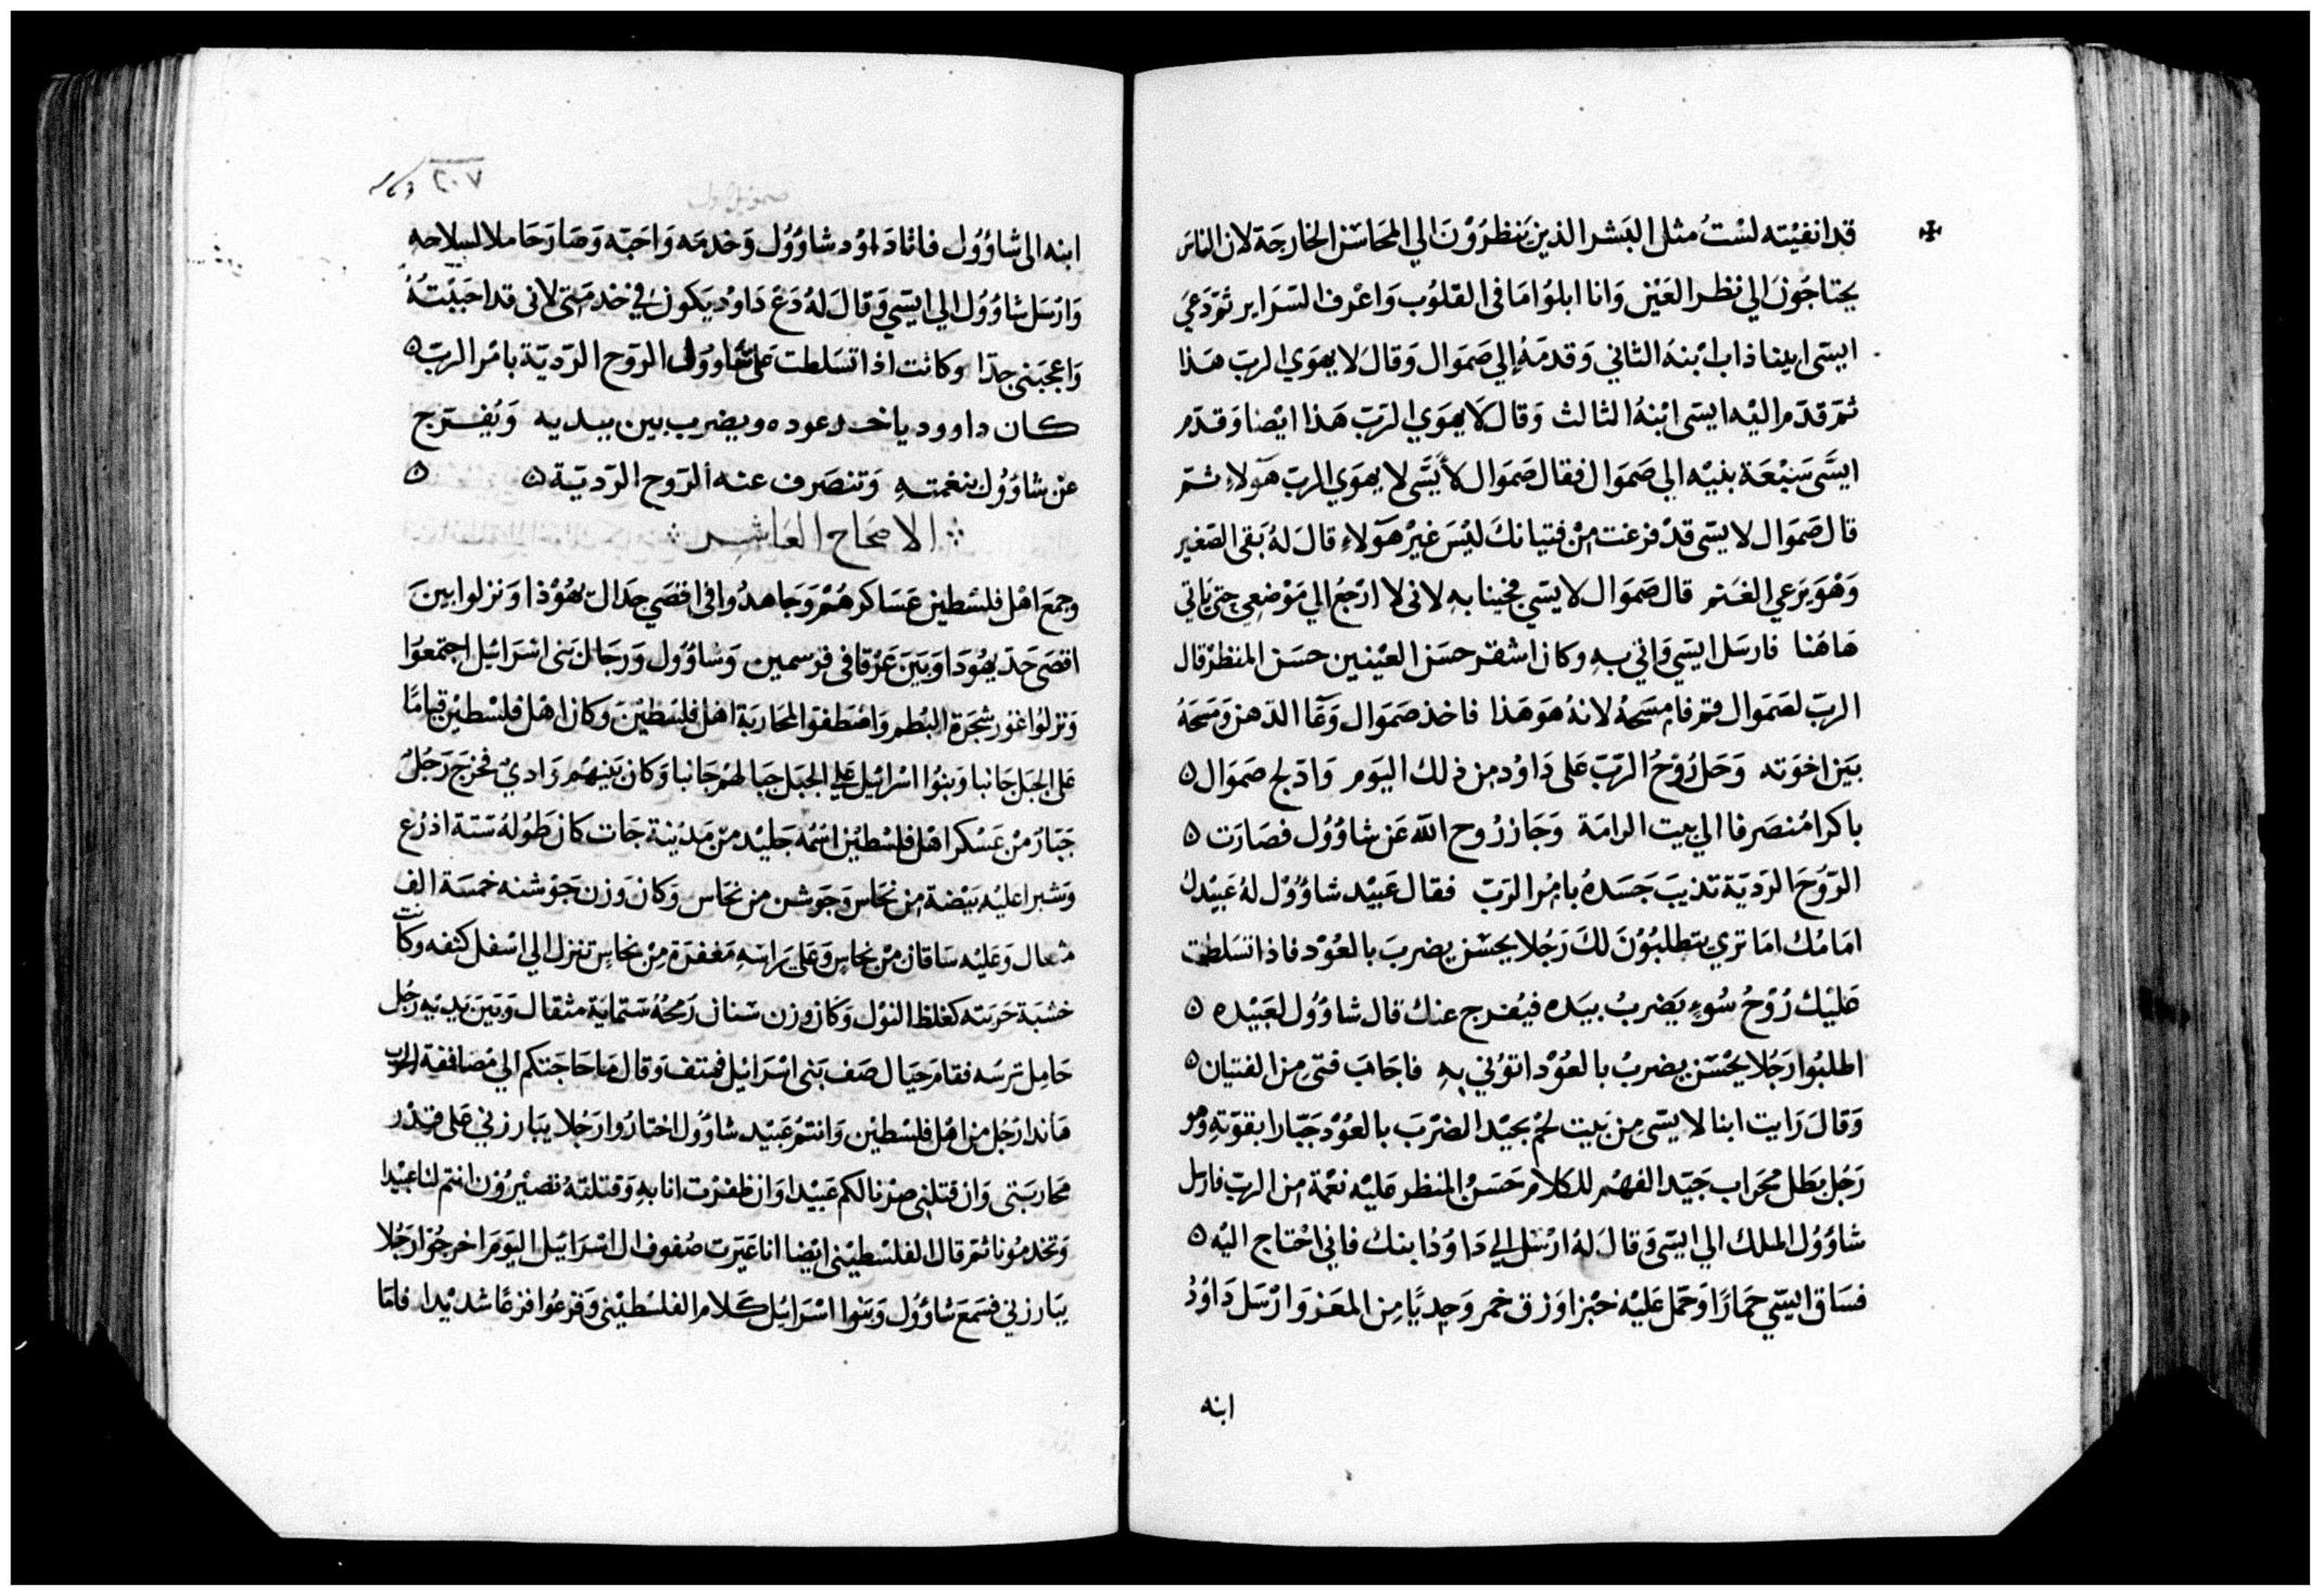 قد انفيته لست مثل البشر الذين ينظرون الي المحاسن الخارجة لان الناس
يحتاجون الي نظر العين وانا ابلوا ما في القلوب واعرف السراير ثم دعي
ايسى ايليناذاب ابنه الثاني وقدمه الي صموال وقال لا يهوي الرب هذا
ثم قدم اليه ايسى ابنه الثالث وقال لا يهوي الرب هذا ايضا وقدم
ايسى سبعة بنيه الي صموال فقال صموال لأيسى لا يهوي الرب هولاء ثم
قال صموال لايسى قد فرغت من فتيانك ليس غير هولاء قال له بقى الصغير
وهو يرعي الغنم قال صموال لايسى فجينا به لانى لا ارجع الي موضعي حتى ياتي
هاهنا فارسل ايسي واتي به وكان اشقر حسن العينين حسن المنظر قال
الرب لصموال قم فامسحه لانه هو هذا فاخذ صموال وعا الدهن ومسحه
بين اخوته وحل روح الرب على داود من ذلك اليوم وادلج صموال ٥
باكرا منصرفا الي بيت الرامة وجاز روح الله عن شاوول فصارت ٥
الروح الردية تذيب جسده بامر الرب فقال عبيد شاوول له عبيدك
امامك اما تري يتطلبون لك رجلا يحسن يضرب بالعود فاذا تسلطت
عليك روح سوء يضرب بيده فيفرج عنك قال شاوول لعبيده ٥
اطلبوا رجلا يحسن يضرب بالعود اتوني به فاجاب فتى من الفتيان ٥
وقال رايت ابنا لايسى من بيت لحم يجيد الضرب بالعود جبارا بقوته وهو
رجل بطل محراب جيد الفهم للكلام حسن المنظر عليه نعمة من الرب فارسل
شاوول الملك الي ايسى وقال له ارسل الي داود ابنك فاني احتاج اليه ٥
فساق ايسي حمارا وحمل عليه خبزا وزق خمر وجديا من المعز وارسل داود
ابنه
٢٠٧
صموئيل اول
ابنه الى شاوول فاتا داود شاوول وخدمه واحبه وصار حاملا لسلاحه
وارسل شاوول الي ايسي وقال له دع داود يكون في خدمتي لانى قد احببته
واعجبني جدا وكانت اذا تسلطت على شاوول الروح الردية بامر الرب ٥
كان داوود ياخد عوده ويضرب بين يديه ويفرج
عن شاوول بنغمته وتنصرف عنه الروح الردية ٥ ٥
الاصحاح العاشر
وجمع اهل فلسطين عساكرهم وجاهدوا في اقصي جدال يهوذا ونزلوا بين
اقصى حد يهودا وبين عزقا في فرسمين وشاوول ورجال بنى اسرائيل اجتمعوا
ونزلوا غور شجرة البطم واصطفوا لمحاربة اهل فلسطين وكان اهل فلسطين قياما
على الجبل جانبا وبنوا اسرائيل علي الجبل جبالهم جانبا وكان بينهم وادي فخرج رجل
جبار من عسكر اهل فلسطين اسمه جليد من مدينة جات كان طوله ستة اذرع
وشبرا عليه بيضة من نحاس وجوشن من نحاس وكان وزن جوشنه خمسة الف
مثقال وعليه ساقان من نحاس وعلى راسه مغفرة من نحاس تنزل الي اسفل كتفه وكانت
خشبة حربته كغلظ النول وكان وزن سنان رمحه ستماية مثقال وبين يديه رجل
حامل ترسه فقام حيال صف بنى اسرائيل فهتف وقال ما حاجتكم الي مصاففة الحرب
هانذا رجل من اهل فلسطين وانتم عبيد شاوول اختاروا رجلا يبارزني على قدر
محاربتى وان قتلنى صرنا لكم عبيدا وان ظفرت انا به وقتلته تصيرون انتم لنا عبيدا
وتخدمونا ثم قال الفلسطيني ايضا انا عيرت صفوف ال اسرائيل اليوم اخرجوا رجلا
يبارزني فسمع شاوول وبنوا اسرائيل كلام الفلسطيني وفزعوا فزعا شديدا فاما